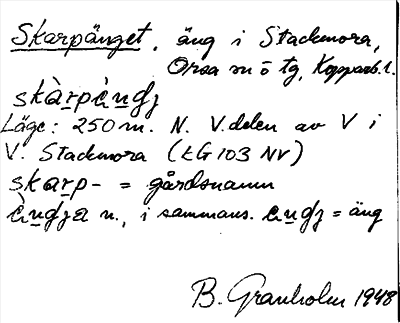 Skarpänget, äng i Stackmora,
Orsa sn ö tg, Kopparb. l.
skàrpὲndʒ
Läge: 250 m. N. V.delen av V i
V. Stackmora (EG 103 NV)
skarp- = gårdsnamn
ὲndʒa n., i sammans. ɛndʒ = äng
B. Granholm 1948